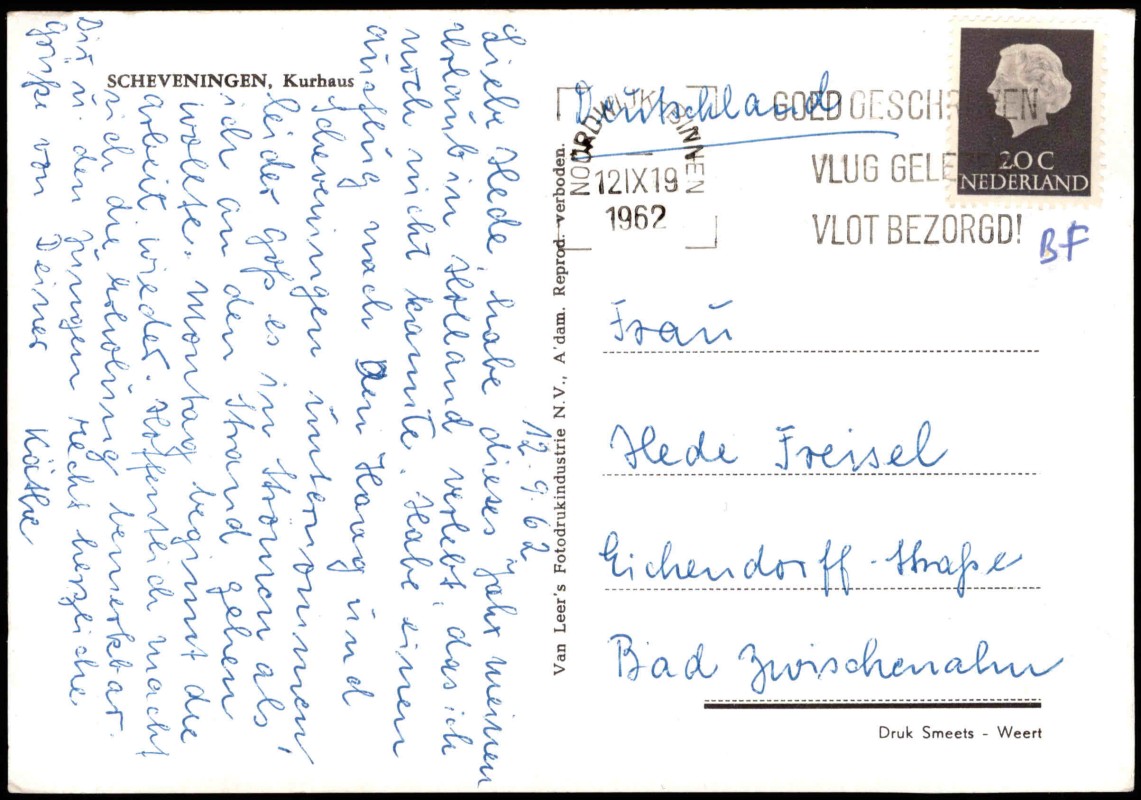 SCHEVENINGEN, Kurhaus
12.9.62
Liebe Hede, habe dieses Jahr meinen
Urlaub in Holland verlebt, das ich
noch nicht kannte. Habe einen
Ausflug nach Den Haag und
Scheveningen unternommen,
leider goß es in Strömen als
ich an den Strand gehen
wollte. Montag beginnt die
Arbeit wieder. Hoffentlich macht
sich die Erholung bemerkbar.
Dir u. den Jungen recht herzliche
Grüße von Deiner Käthe
Van Leer's Fotodrukindustrie N.V., A'dam. Reprod. verboden.
Deutschland
NOORDWIJK BINNEN
12IX19
1962
GOED GESCHREVEN
VLUG GELEZEN
VLOT BEZORGD!
20 C
NEDERLAND
BF
Frau
Hede Freisel
Eichendorff-Straße
Bad Zwischenahn
Druk Smeets - Weert